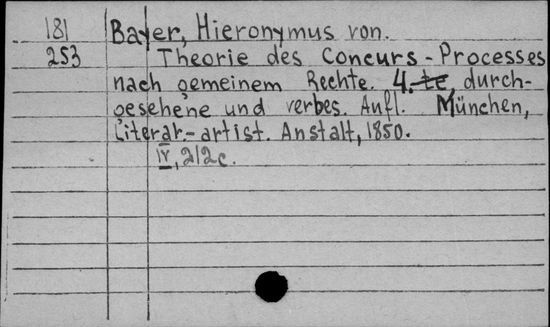 181 Bayer, Hieronymus von.
253 Theorie des Concurs-Processes
nach gemeinem Rechte. 4. te, durch-
gesehene und verbes. Aufl. München,
Literar-artist. Anstalt, 1850.
IV, 212c.